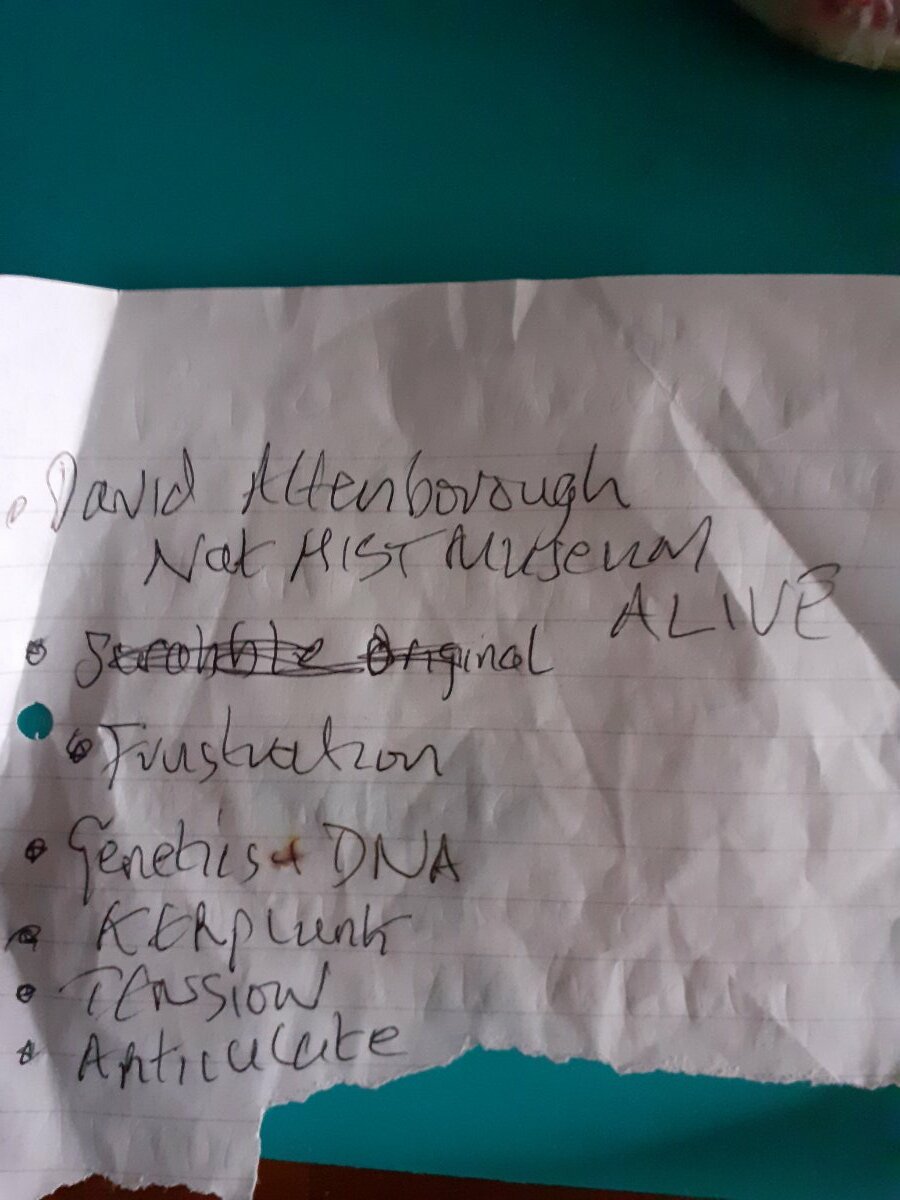 David Attenborough
Nat HIST Museum
ALIVE
Scrabble Original
Frustration
Genetics + DNA
KERPlunk
TENSSION
Articulate